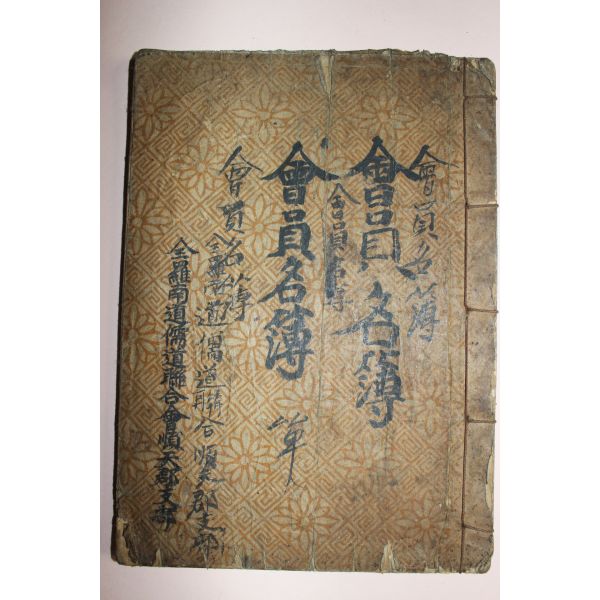 會員名簿
會員名簿
會員名簿
會員名簿
會員名簿
全羅南道儒道聯合會順天郡支部
全羅 道儒道聯合 順天郡支部